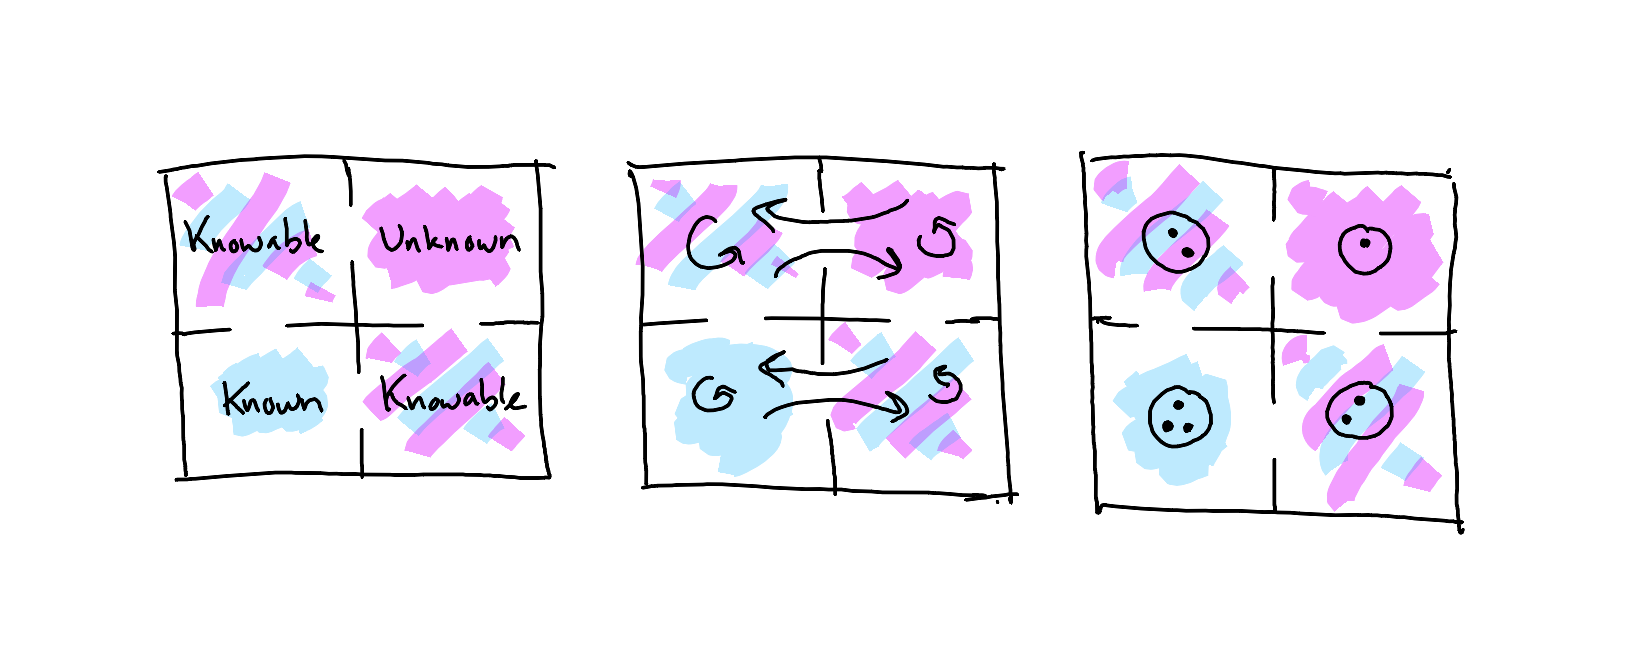 Knowable Unknown
Known Knowable